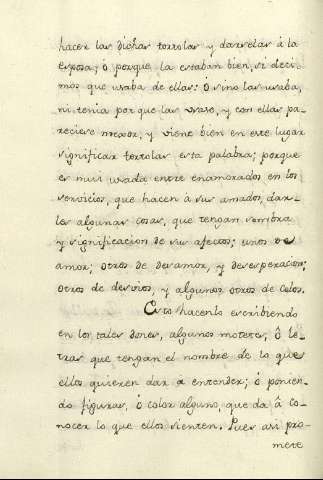 hacer las dichas tortolas y darselas à la
esposa; ó porque la estaban bien, si deci-
mos que usaba de ellas: ó sino las usaba,
ni tenia por que las usase, y con ellas pa-
reciese mejor; y viene bien en este lugar
significar tortolas esta palabra; porque
es mui usada entre enamorados en los
servicios, que hacen a sus amadas, dar-
les algunas cosas, que tengan sombra
y significacion de sus afectos; unos de
amor; otros de desamor, y desesperacion;
otros de desvios, y algunos otros de celos.
Esto hacenlo escribiendo
en los tales dones, algunos motetes, ô le-
tras que tengan el nombre de lo que
ellos quieren dar a entender; ó ponien-
do figuras, ó color alguno, que dà â co-
nocer lo que ellos sienten. Pues asi pro-
mete